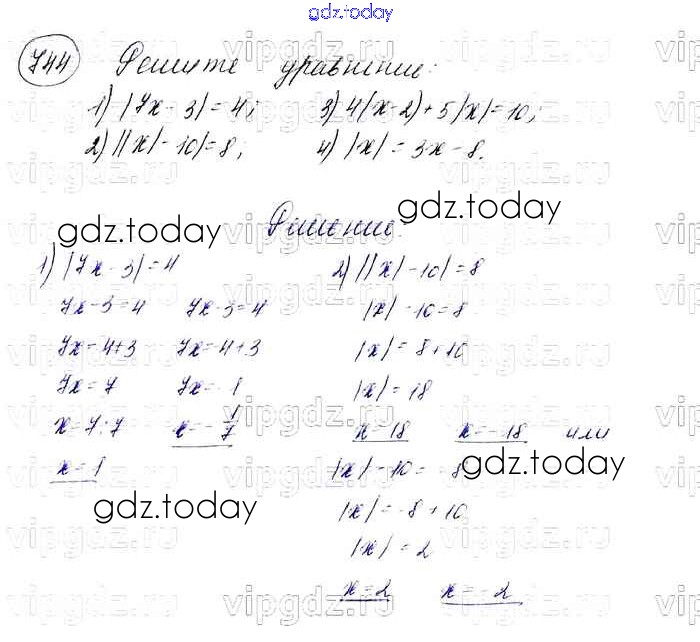 gdz.today
744 Решите уравнение:
1) |7x - 3| = 4; 3) 4(x-2) + 5|x| = 10;
2) ||x| - 10| = 8; 4) |x| = 3x - 8.
gdz.today gdz.today
Решение:
1) |7x - 3| = 4 2) ||x| - 10| = 8
7x - 3 = 4 7x - 3 = 4 |x| - 10 = 8
7x = 4+3 7x = 4+3 |x| = 8 + 10
7x = 7 7x = -1 |x| = 18
x = 7:7 x = -1/7 x = 18 x = -18 или
x = 1 |x| - 10 = -8
gdz.today gdz.today
|x| = -8 + 10
|x| = 2
x = 2 x = -2